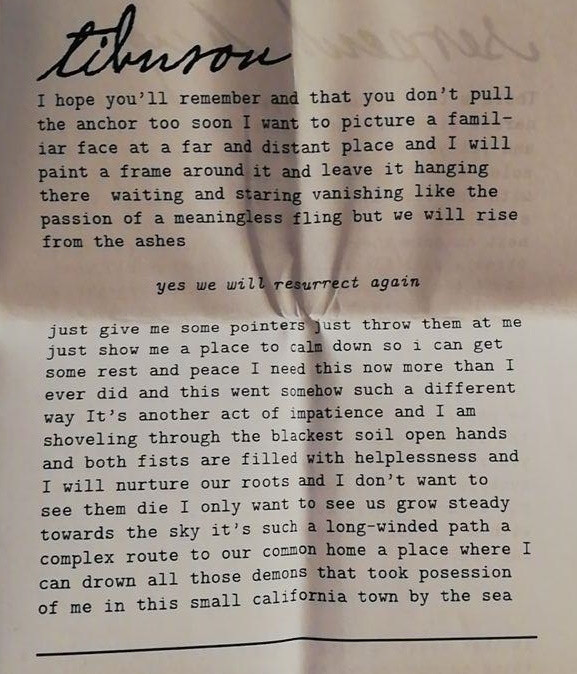 tiburon
I hope you'll remember and that you don't pull
the anchor too soon I want to picture a famil-
iar face at a far and distant place and I will
paint a frame around it and leave it hanging
there waiting and staring vanishing like the
passion of a meaningless fling but we will rise
from the ashes
yes we will resurrect again
just give me some pointers just throw them at me
just show me a place to calm down so i can get
some rest and peace I need this now more than I
ever did and this went somehow such a different
way It's another act of impatience and I am
shoveling through the blackest soil open hands
and both fists are filled with helplessness and
I will nurture our roots and I don't want to
see them die I only want to see us grow steady
towards the sky it's such a long-winded path a
complex route to our common home a place where I
can drown all those demons that took posession
of me in this small california town by the sea